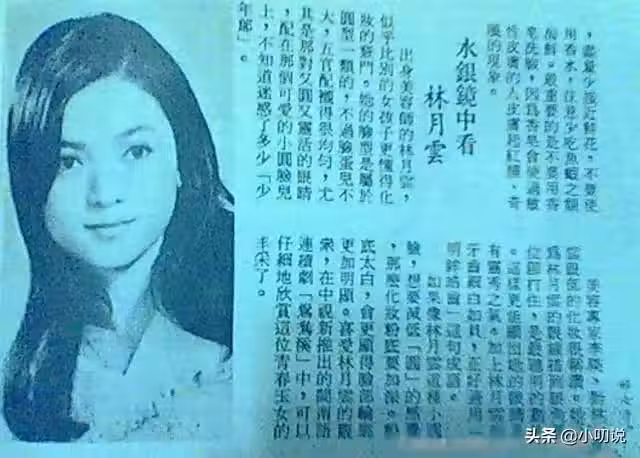 ，盡量少接近鮮花，不要使
用香水，注意少吃魚蝦之類
海鮮。最重要的是不要用香
皂洗臉，因為香皂會使過敏
性皮膚的人皮膚起紅腫、奇
癢的現象。
水銀鏡中看
林月雲
出身美容師的林月雲，
似乎比別的女孩子更懂得化
妝的竅門。她的臉型是屬於
圓型一類的，不過臉蛋兒不
大，五官配襯得很均勻，尤
其是那對又圓又靈活的眼睛
，配在那個可愛的小圓臉兒
上，不知道迷惑了多少「少
年郎」。
美容專家李
雲眼部的化妝很
為林月雲的眼線描到眼
位即打住，是最聰明的
。這樣更能顯出她的眼睛
有靈秀之氣。加上林月雲
牙齒細白如貝，正好適用「
明眸皓齒」這句成語。
如果像林月雲這種小圓
臉，想要減低「圓」的感覺
，那麼化妝粉底要加深。粉
底太白，會更顯得臉部輪
更加明顯。喜愛林月雲的觀
衆，在中視新推出的閩南語
連續劇「鴛鴦
」中，可以
仔細地欣賞這位青春玉女的
丰采了。
头条 @小叨说